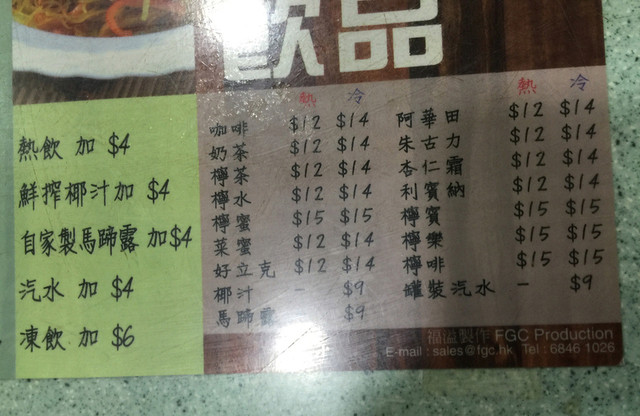 飲品
熱飲 加 $4
鮮搾椰汁加 $4
自家製馬蹄露 加$4
汽水 加 $4
凍飲 加 $6
熱 冷
咖啡 $12 $14
奶茶 $12 $14
檸茶 $12 $14
檸水 $12 $14
檸蜜 $15 $15
菜蜜 $12 $14
好立克 $12 $14
椰汁 - $9
馬蹄露 - $9
熱 冷
阿華田 $12 $14
朱古力 $12 $14
杏仁霜 $12 $14
利賓納 $12 $14
檸賓 $15 $15
檸樂 $15 $15
檸啡 $15 $15
罐裝汽水 - $9
福溢製作 FGC Production
E-mail : sales@fgc.hk Tel : 6846 1026